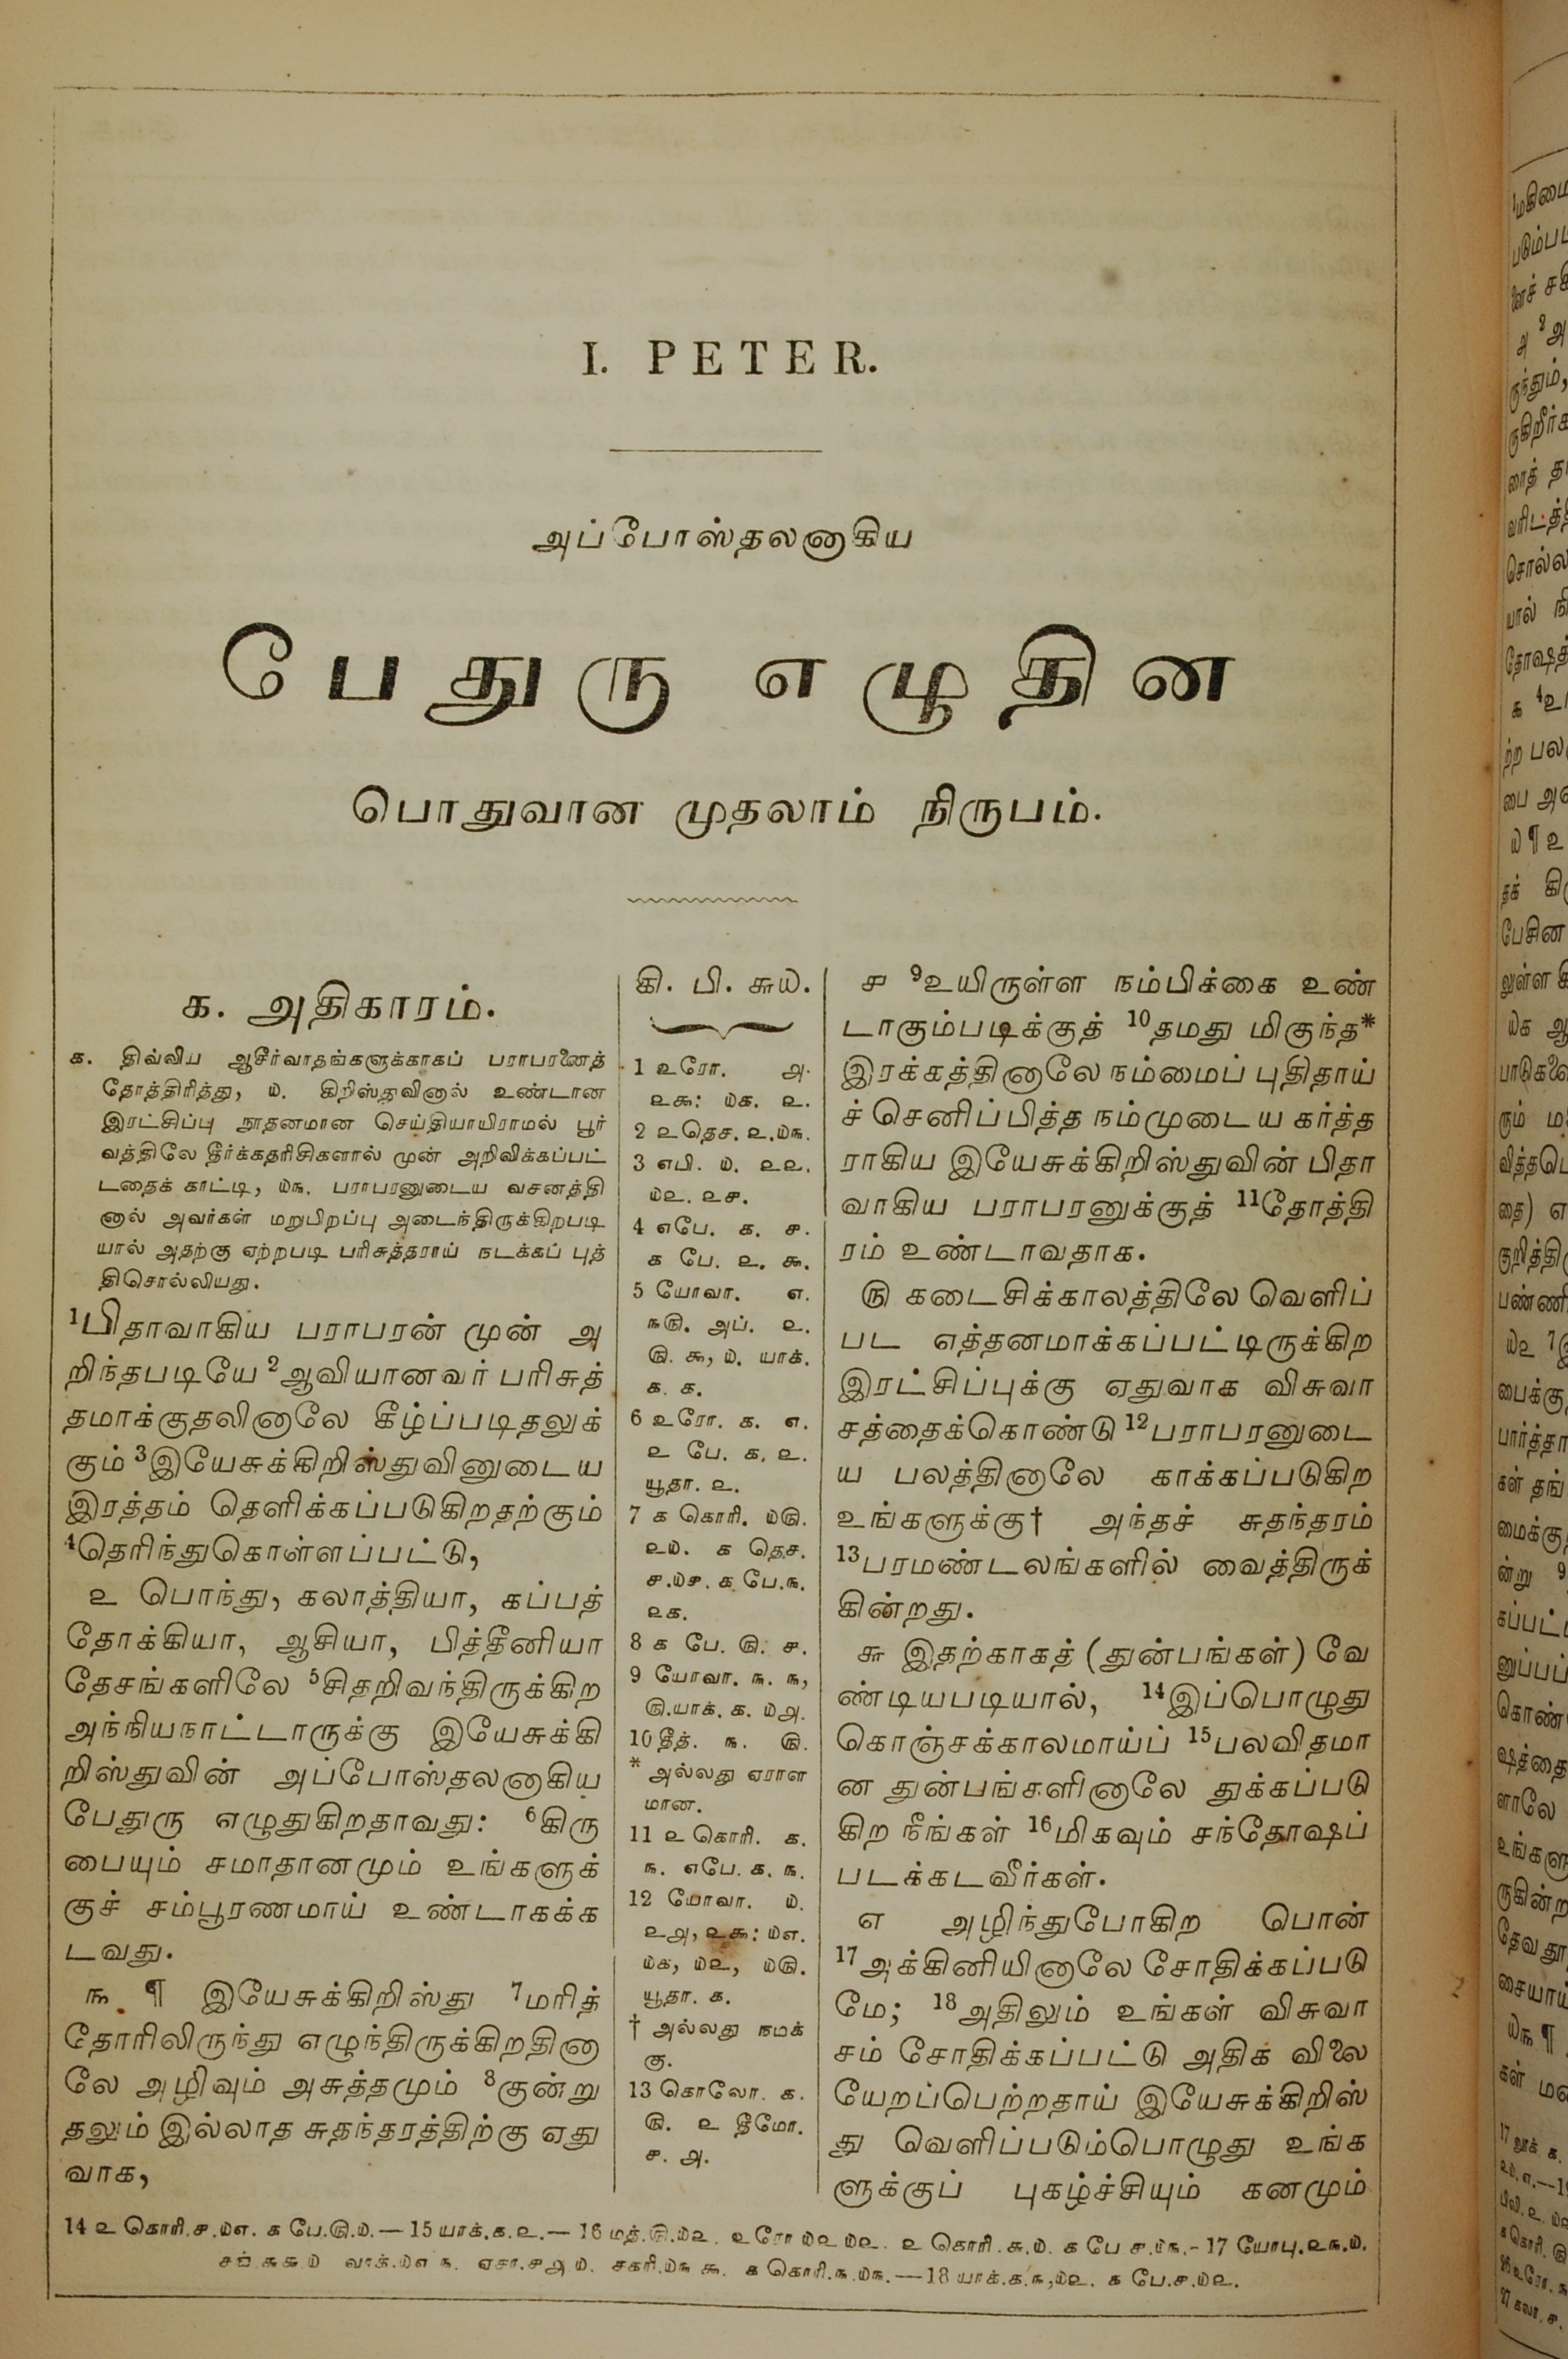 I. PETER.
அப்போஸ்தலனாகிய
பேதுரு எழுதின
பொதுவான முதலாம் நிருபம்.
க. அதிகாரம்.
க. திவ்விய ஆசீர்வாதங்களுக்காகப் பராபரனைத்
தோத்திரித்து, ௰. கிறிஸ்துவினால் உண்டான
இரட்சிப்பு நூதனமான செய்தியாயிராமல் பூர்
வத்திலே தீர்க்கதரிசிகளால் முன் அறிவிக்கப்பட்
டதைக் காட்டி, ௰௩. பராபரனுடைய வசனத்தி
னால் அவர்கள் மறுபிறப்பு அடைந்திருக்கிறபடி
யால் அதற்கு ஏற்றபடி பரிசுத்தராய் நடக்கப் புத்
திசொல்லியது.
1பிதாவாகிய பராபரன் முன் அ
றிந்தபடியே 2ஆவியானவர் பரிசுத்
தமாக்குதலினாலே கீழ்ப்படிதலுக்
கும் 3இயேசுக்கிறிஸ்துவினுடைய
இரத்தம் தெளிக்கப்படுகிறதற்கும்
4தெரிந்துகொள்ளப்பட்டு,
௨ பொந்து, கலாத்தியா, கப்பத்
தோக்கியா, ஆசியா, பித்தீனியா
தேசங்களிலே 5சிதறிவந்திருக்கிற
அந்நியநாட்டாருக்கு இயேசுக்கி
றிஸ்துவின் அப்போஸ்தலனாகிய
பேதுரு எழுதுகிறதாவது: 6கிரு
பையும் சமாதானமும் உங்களுக்
குச் சம்பூரணமாய் உண்டாகக்க
டவது.
௩ ¶ இயேசுக்கிறிஸ்து 7மரித்
தோரிலிருந்து எழுந்திருக்கிறதினா
லே அழிவும் அசுத்தமும் 8குன்று
தலும் இல்லாத சுதந்தரத்திற்கு ஏது
வாக,
கி. பி. ௬௰.
1 உரோ. ௮.
௨௯: ௰௧. ௨.
2 ௨ தெச. ௨.௰௩.
3 எபி. ௰. ௨௨.
௰௨. ௨௪.
4 எபே. ௧. ௪.
௧ பே. ௨. ௯.
5 யோவா. ௭.
௩௫. அப். ௨.
௫. ௯, ௰. யாக்.
௧. ௧.
6 உரோ. ௧. ௭.
௨ பே. ௧. ௨.
யூதா. ௨.
7 ௧ கொரி. ௰௫.
௨௰. ௧ தெச.
௪.௰௪. ௧ பே.௩.
௨௧.
8 ௧ பே. ௫. ௪.
9 யோவா. ௩. ௩,
௫.யாக். ௧. ௰௮.
10 தீத். ௩. ௫.
* அல்லது ஏராள
மான.
11 ௨ கொரி. ௧.
௩. எபே. ௧. ௩.
12 யோவா. ௰.
௨௮, ௨௯: ௰௭.
௰௧, ௰௨, ௰௫.
யூதா. ௧.
† அல்லது நமக்
கு.
13 கொலோ. ௧.
௫. ௨ தீமோ.
௪. ௮.
௪ 9உயிருள்ள நம்பிக்கை உண்
டாகும்படிக்குத் 10தமது மிகுந்த*
இரக்கத்தினாலே நம்மைப் புதிதாய்
ச் செனிப்பித்த நம்முடைய கர்த்த
ராகிய இயேசுக்கிறிஸ்துவின் பிதா
வாகிய பராபரனுக்குத் 11தோத்தி
ரம் உண்டாவதாக.
௫ கடைசிக்காலத்திலே வெளிப்
பட எத்தனமாக்கப்பட்டிருக்கிற
இரட்சிப்புக்கு ஏதுவாக விசுவா
சத்தைக்கொண்டு 12பராபரனுடை
ய பலத்தினாலே காக்கப்படுகிற
உங்களுக்கு† அந்தச் சுதந்தரம்
13பரமண்டலங்களில் வைத்திருக்
கின்றது.
௬ இதற்காகத் (துன்பங்கள்) வே
ண்டியபடியால், 14இப்பொழுது
கொஞ்சக்காலமாய்ப் 15பலவிதமா
ன துன்பங்களினாலே துக்கப்படு
கிற நீங்கள் 16மிகவும் சந்தோஷப்
படக்கடவீர்கள்.
௭ அழிந்துபோகிற பொன்
17அக்கினியினாலே சோதிக்கப்படு
மே; 18அதிலும் உங்கள் விசுவா
சம் சோதிக்கப்பட்டு அதிக விலை
யேறப்பெற்றதாய் இயேசுக்கிறிஸ்
து வெளிப்படும்பொழுது உங்க
ளுக்குப் புகழ்ச்சியும் கனமும்
14 ௨ கொரி.௪.௰௭. ௧ பே.௫.௰.—15 யாக்.௧.௨.—16 மத்.௫.௰௨. உரோ ௰௨ ௰௨. ௨ கொரி.௬.௰. ௧ பே ௪.௰௩.-17 யோபு.௨௩.௰.
ஏசா.௪௮ ௰. சகரி.௰௩ ௯. ௧ கொரி.௩.௰௩.—18 யாக்.௧.௩,௰௨. ௧ பே.௪.௰௨.